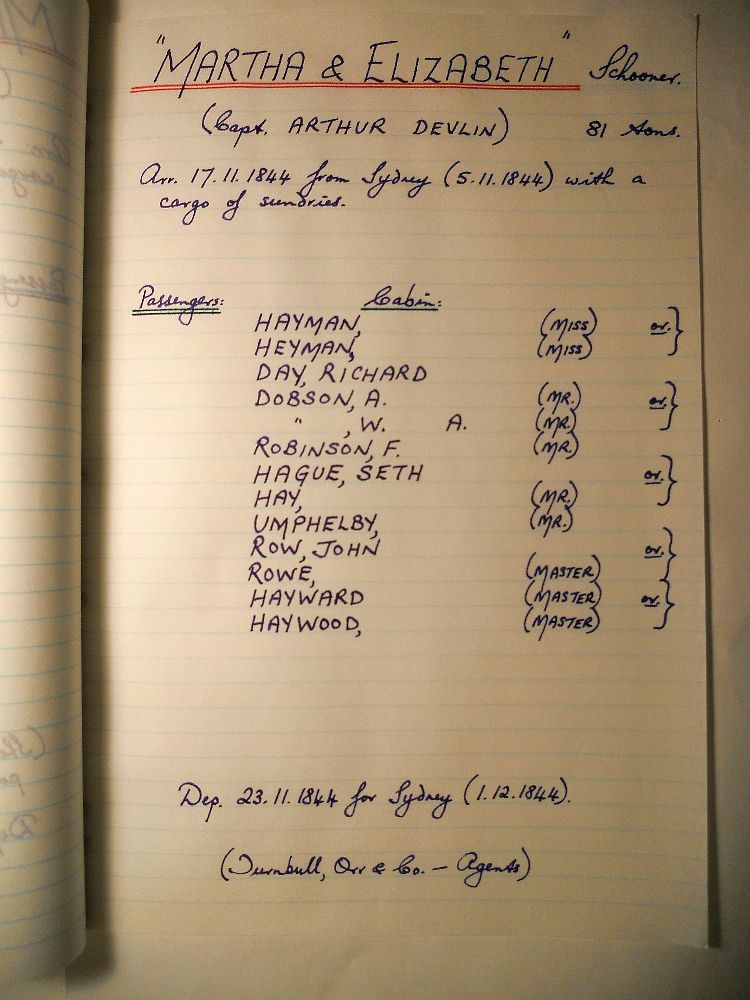 "MARTHA & ELIZABETH" Schooner.
(Capt. ARTHUR DEVLIN) 81 tons.
Arr. 17.11.1844 from Sydney (5.11.1844) with a
cargo of sundries.
Passengers: Cabin:
HAYMAN, (MISS) or. }
HEYMAN, (MISS)
DAY, RICHARD
DOBSON, A. (MR.) or. }
" , W. A. (MR.)
ROBINSON, F. (MR.)
HAGUE, SETH or. }
HAY, (MR.)
UMPHELBY, (MR.)
ROW, JOHN or. }
ROWE, (MASTER)
HAYWARD (MASTER) or. }
HAYWOOD, (MASTER)
Dep. 23.11.1844 for Sydney (1.12.1844).
(Turnbull, Orr & Co. – Agents)